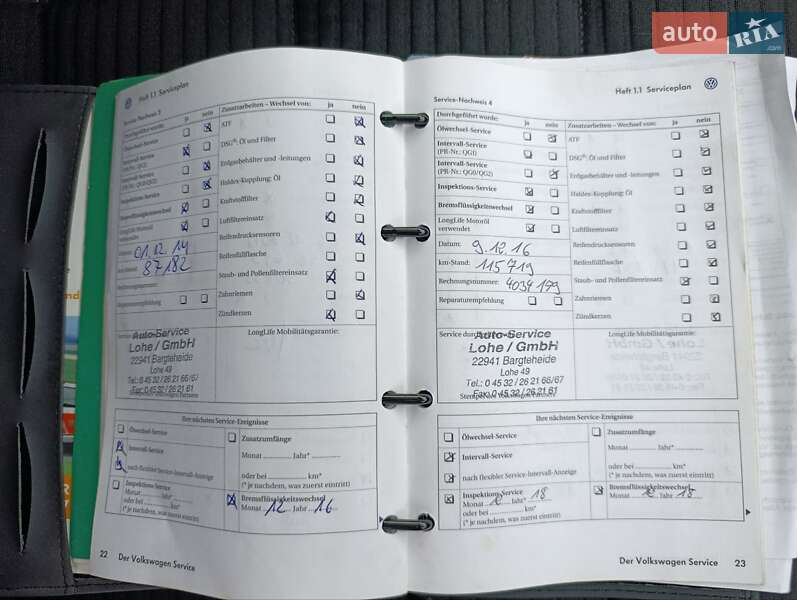 auto RIA .com
Heft 1.1 Serviceplan
Service-Nachweis 3
Durchgeführt wurde: ja nein
Ölwechsel-Service
Intervall-Service
(PR-Nr.: QG1)
Intervall-Service
(PR-Nr.: QG0/QG2)
Inspektions-Service
Bremsflüssigkeitswechsel
LongLife Motoröl
verwendet
Datum: 01.12.14
km-Stand: 87182
Rechnungsnummer:
Reparaturempfehlung
Zusatzarbeiten – Wechsel von: ja nein
ATF
DSG®: Öl und Filter
Erdgasbehälter und -leitungen
Haldex-Kupplung: Öl
Kraftstofffilter
Luftfiltereinsatz
Reifendrucksensoren
Reifenfüllflasche
Staub- und Pollenfiltereinsatz
Zahnriemen
Zündkerzen
Auto-Service
Lohe / GmbH
22941 Bargteheide
Lohe 49
Tel.: 0 45 32 / 26 21 66/67
Fax: 0 45 32 / 26 21 61
LongLife Mobilitätsgarantie:
Ihre nächsten Service-Ereignisse
Ölwechsel-Service
Intervall-Service
nach flexibler Service-Intervall-Anzeige
Inspektions-Service
Monat Jahr*
oder bei km*
(* je nachdem, was zuerst eintritt)
Zusatzumfänge
Monat Jahr*
oder bei km*
(* je nachdem, was zuerst eintritt)
Bremsflüssigkeitswechsel
Monat 12 Jahr 16
22 Der Volkswagen Service
Heft 1.1 Serviceplan
Service-Nachweis 4
Durchgeführt wurde: ja nein
Ölwechsel-Service
Intervall-Service
(PR-Nr.: QG1)
Intervall-Service
(PR-Nr.: QG0/QG2)
Inspektions-Service
Bremsflüssigkeitswechsel
LongLife Motoröl
verwendet
Datum: 9.12.16
km-Stand: 115719
Rechnungsnummer: 4034179
Reparaturempfehlung
Zusatzarbeiten – Wechsel von: ja nein
ATF
DSG®: Öl und Filter
Erdgasbehälter und -leitungen
Haldex-Kupplung: Öl
Kraftstofffilter
Luftfiltereinsatz
Reifendrucksensoren
Reifenfüllflasche
Staub- und Pollenfiltereinsatz
Zahnriemen
Zündkerzen
Service durch
Auto-Service
Lohe / GmbH
22941 Bargteheide
Lohe 49
Tel.: 0 45 32 / 26 21 66/67
Fax: 0 45 32 / 26 21 61
Stempel des Volkswagen Partners
LongLife Mobilitätsgarantie:
Ihre nächsten Service-Ereignisse
Ölwechsel-Service
Intervall-Service
nach flexibler Service-Intervall-Anzeige
Inspektions-Service
Monat 12 Jahr* 18
oder bei km*
(* je nachdem, was zuerst eintritt)
Zusatzumfänge
Monat Jahr*
oder bei km*
(* je nachdem, was zuerst eintritt)
Bremsflüssigkeitswechsel
Monat 12 Jahr 18
Der Volkswagen Service 23